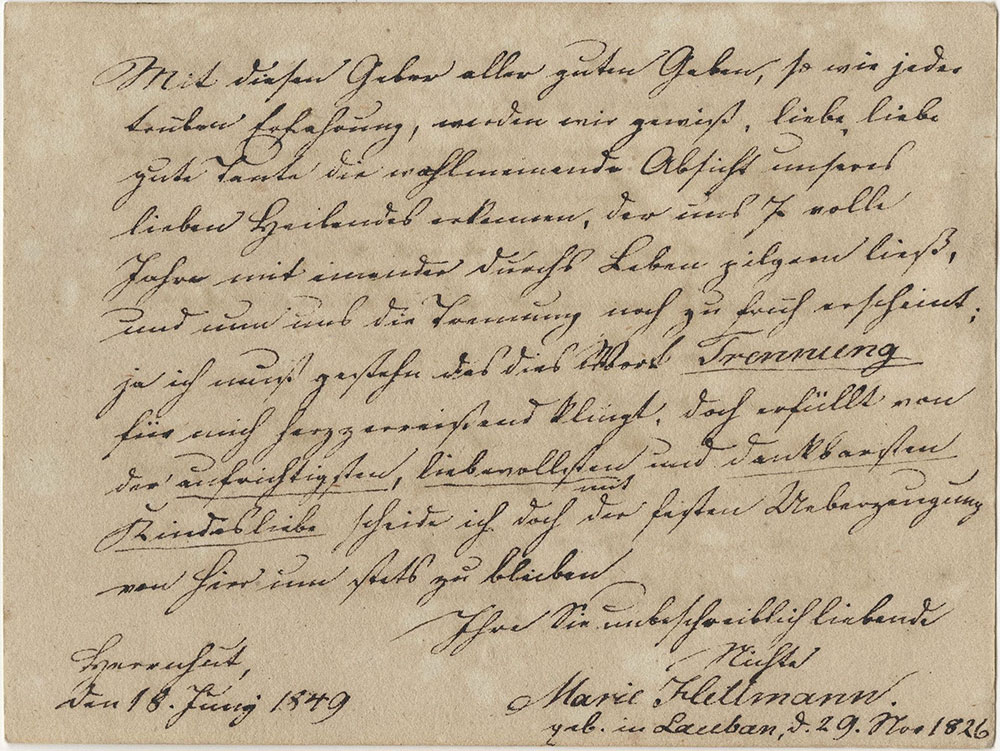 Mit diesen Geber aller guten Gaben, so wie jeder
trüben Erfahrung, werden wir gewiß, liebe, liebe
gute Tante die wohlmeinende Absicht unseres
lieben Heilandes erkennen, der uns 7 volle
Jahre mit einander durchs Leben pilgern ließ,
und nun uns die Trennung noch zu früh erscheint;
ja ich muß gestehn das dies Wort Trennung
für mich herzzerreißend klingt, doch erfüllt von
der aufrichtigsten, liebevollsten und dankbarsten
Kindesliebe scheide ich doch mit der festen Ueberzeugung
von hier um stets zu bleiben
Ihre Sie unbeschreiblich liebende
Nichte
Herrnhut,
den 18. Juny 1849
Marie
geb. in Lauban, d. 29. Nov 1826